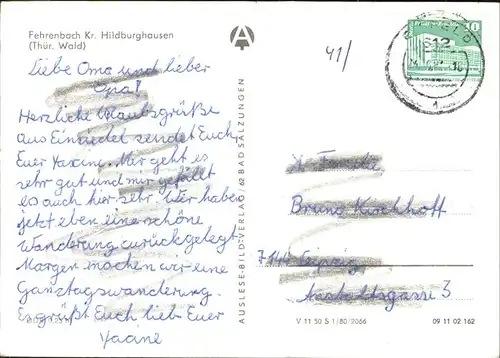 Fehrenbach Kr. Hildburghausen
(Thür. Wald)
Liebe Oma und lieber
Opa!
Herzliche Urlaubsgrüße
aus Einsiedel sendet Euch
Euer. Mir geht es
sehr gut und mir gefällt
es auch hier sehr. Wir haben
jetzt eben eine schöne
Wanderung zurückgelegt.
Morgen machen wir eine
Ganztagswanderung.
Es grüßt Euch lieb Euer
AUSLESE-BILD-VERLAG 62 BAD SALZUNGEN
41/
612
10
Familie
Bruno Kirchhoff
Leipzig
3
V 11 50 S 1/80/2066
09 11 02 162